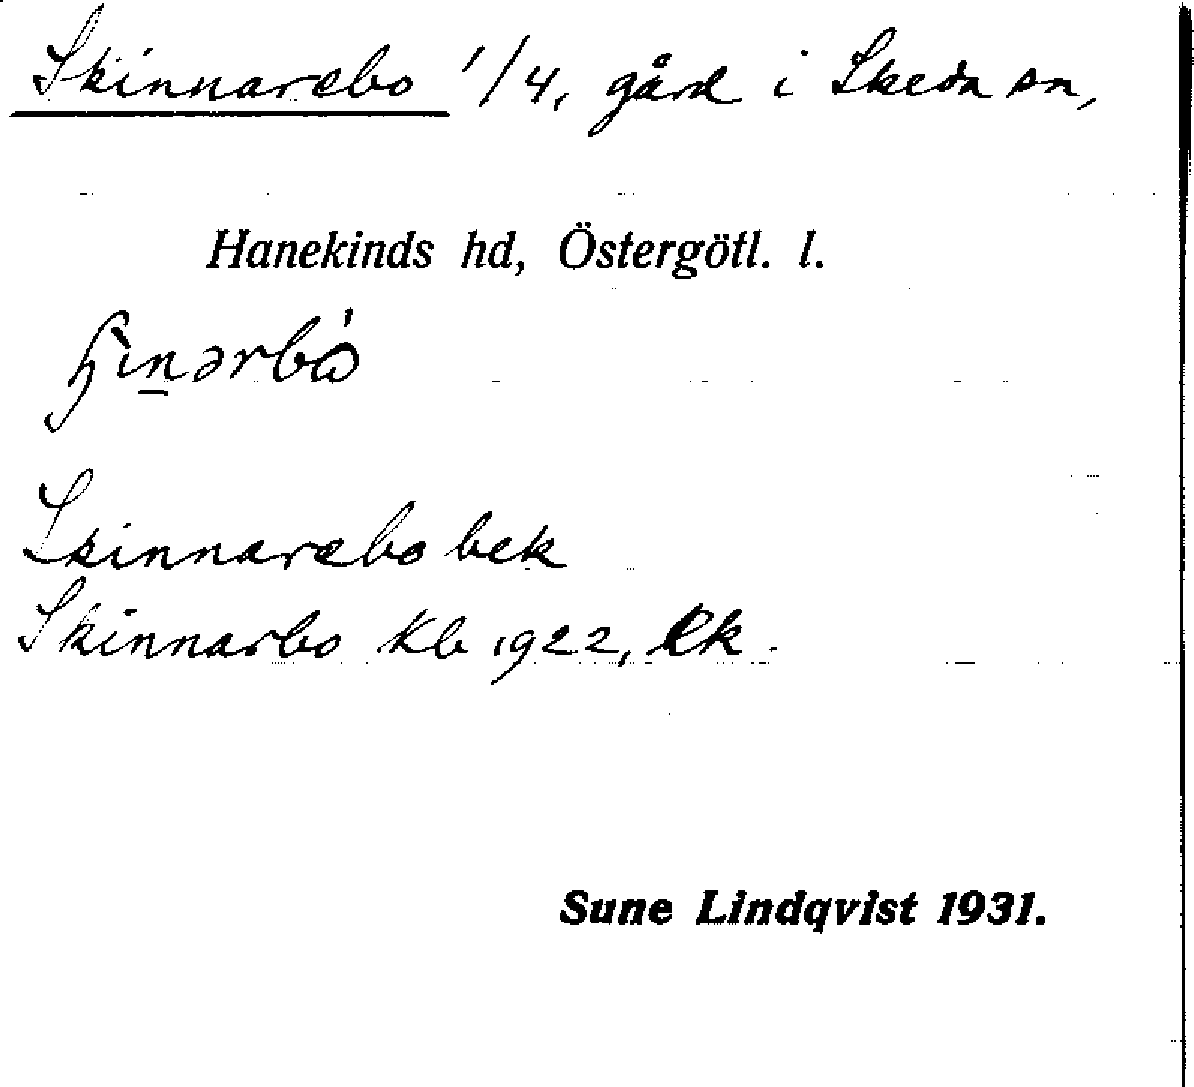 Skinnarebo 1/4, gård i Skeda sn,
Hanekinds hd, Östergötl. l.
Skinnarebo bek
Skinnarbo Kb 1922, Ek.
Sune Lindqvist 1931.